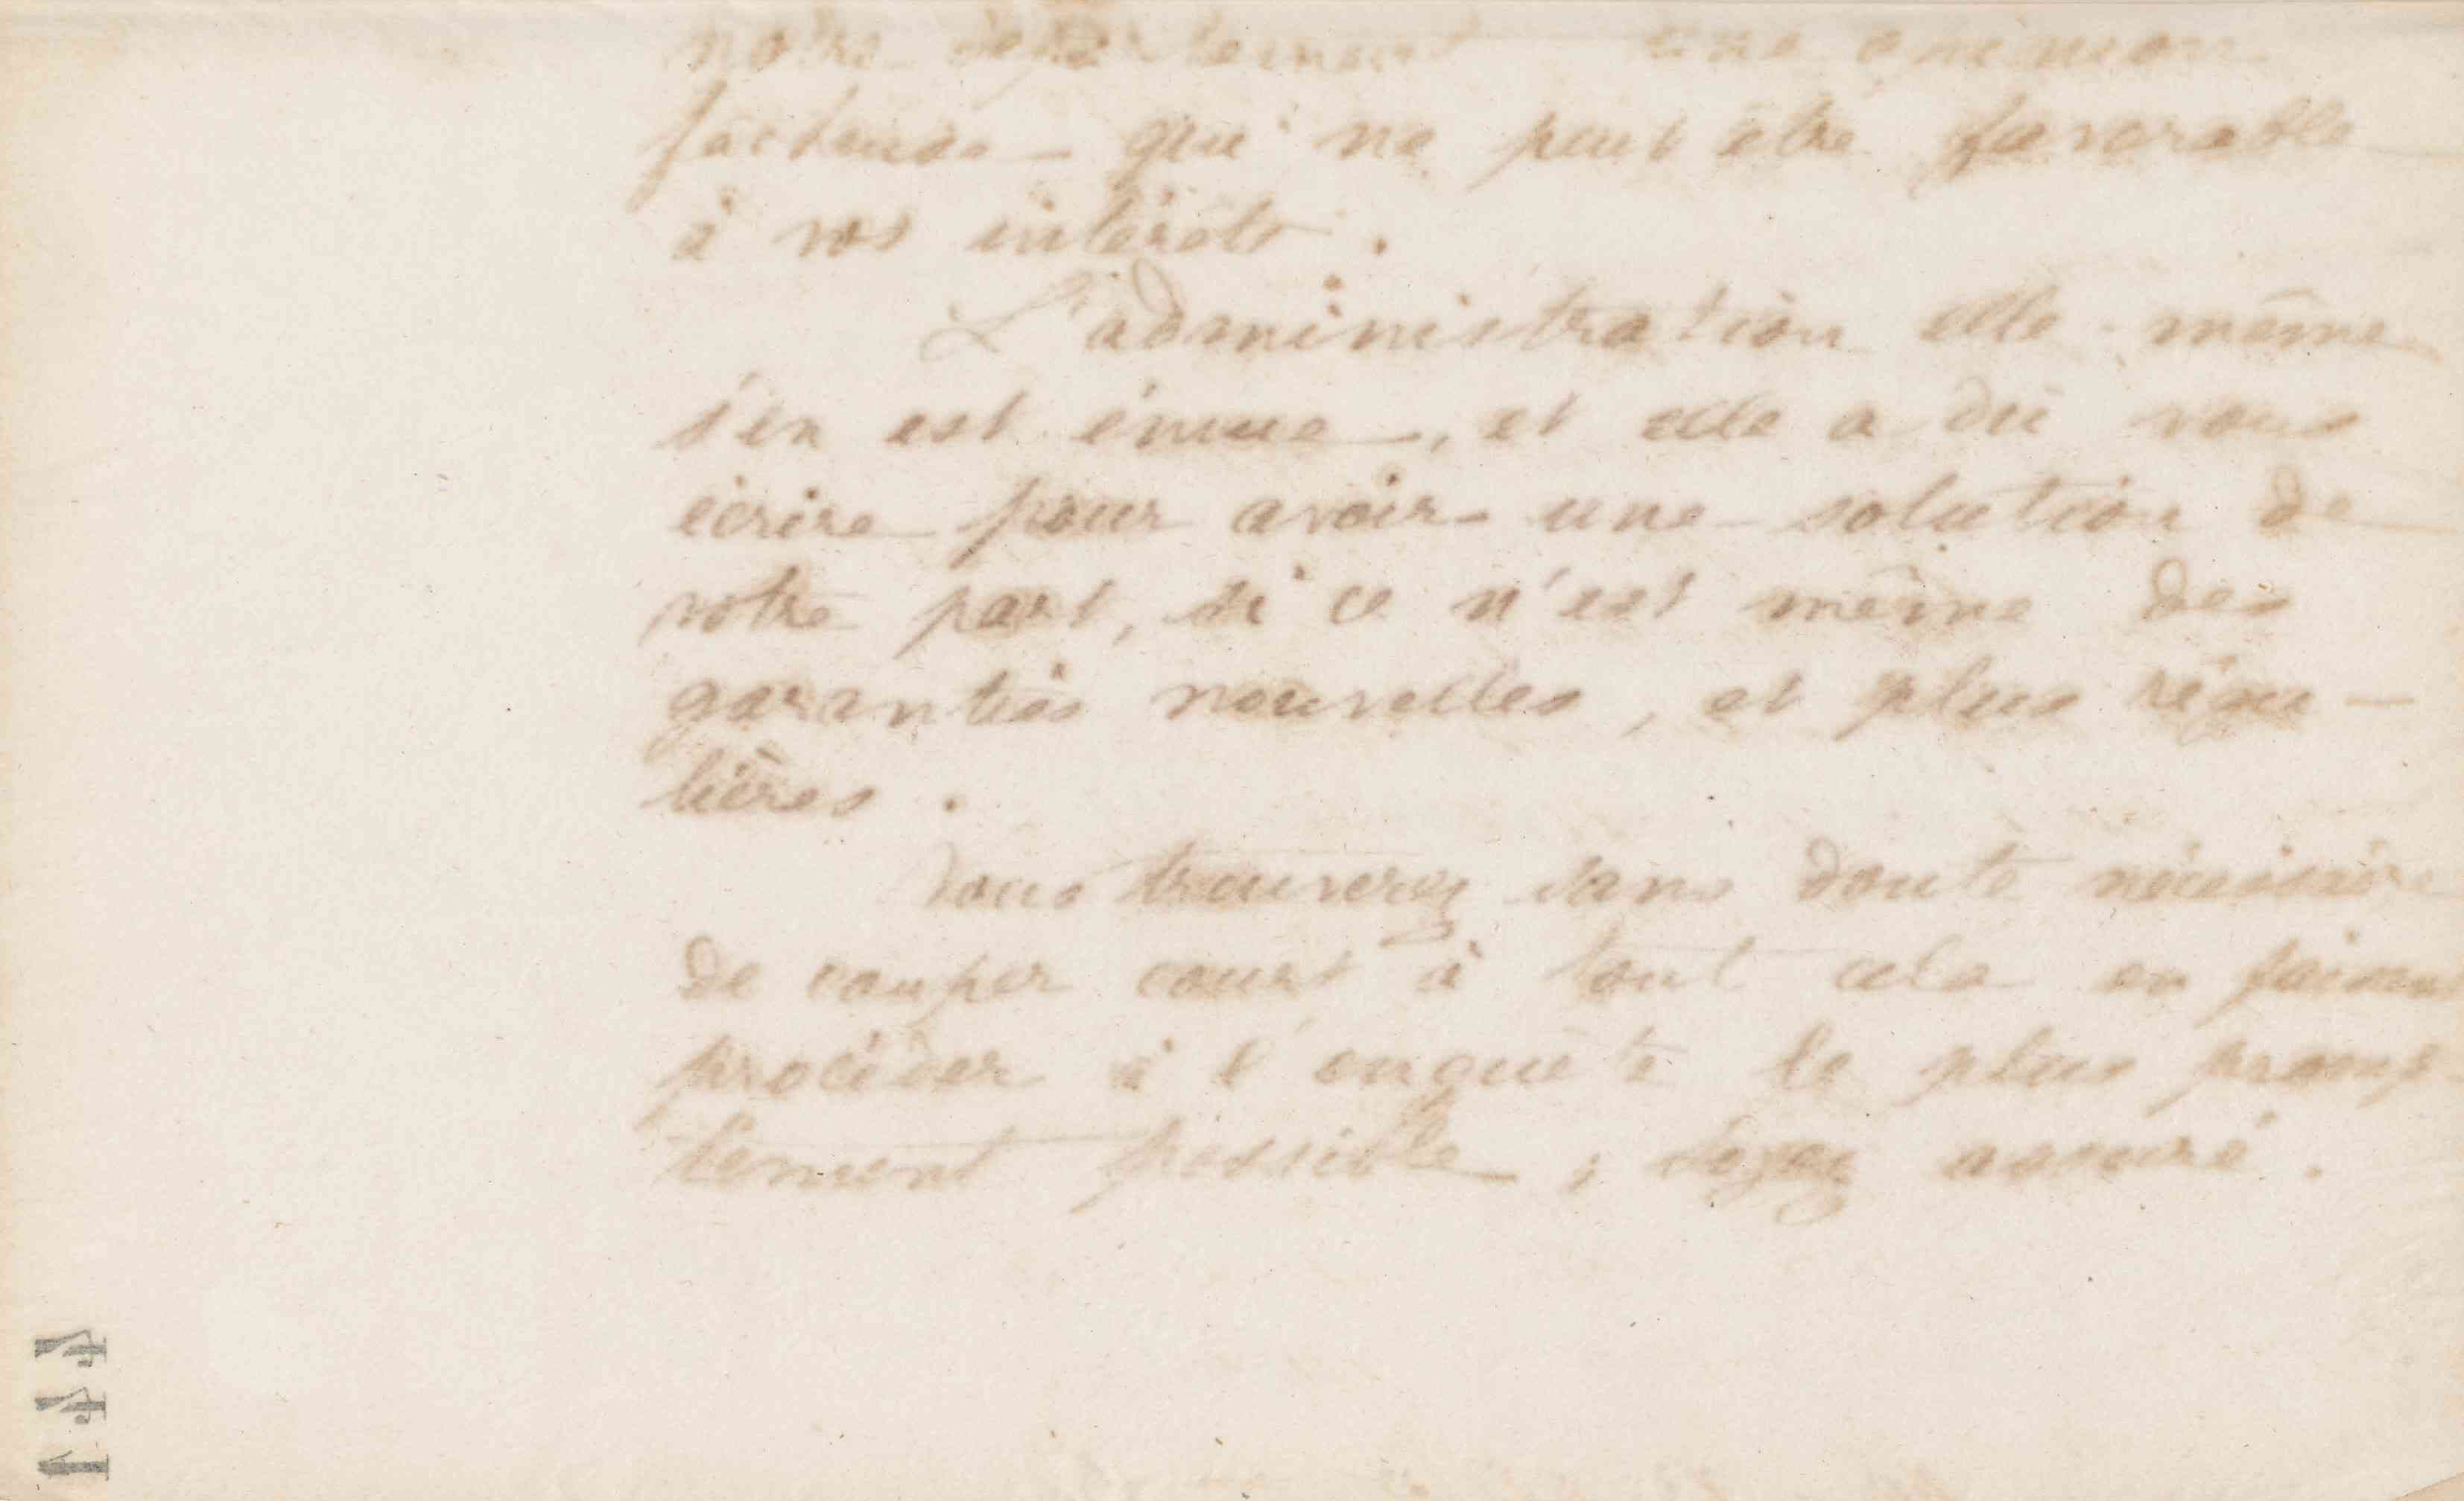 notre département une opinion
facheuse qui ne peut être favorable
à vos intérêts.
L'administration elle-même
s'en est émue, et elle a dû vous
écrire pour avoir une solution de
votre part, si ce n'est même des
garanties nouvelles, et plus régu-
lières.
Vous trouverez sans doute nécessaire
de couper court à tout cela en faisant
procéder à l'enquête le plus promp
tement possible, soyez assuré.
144